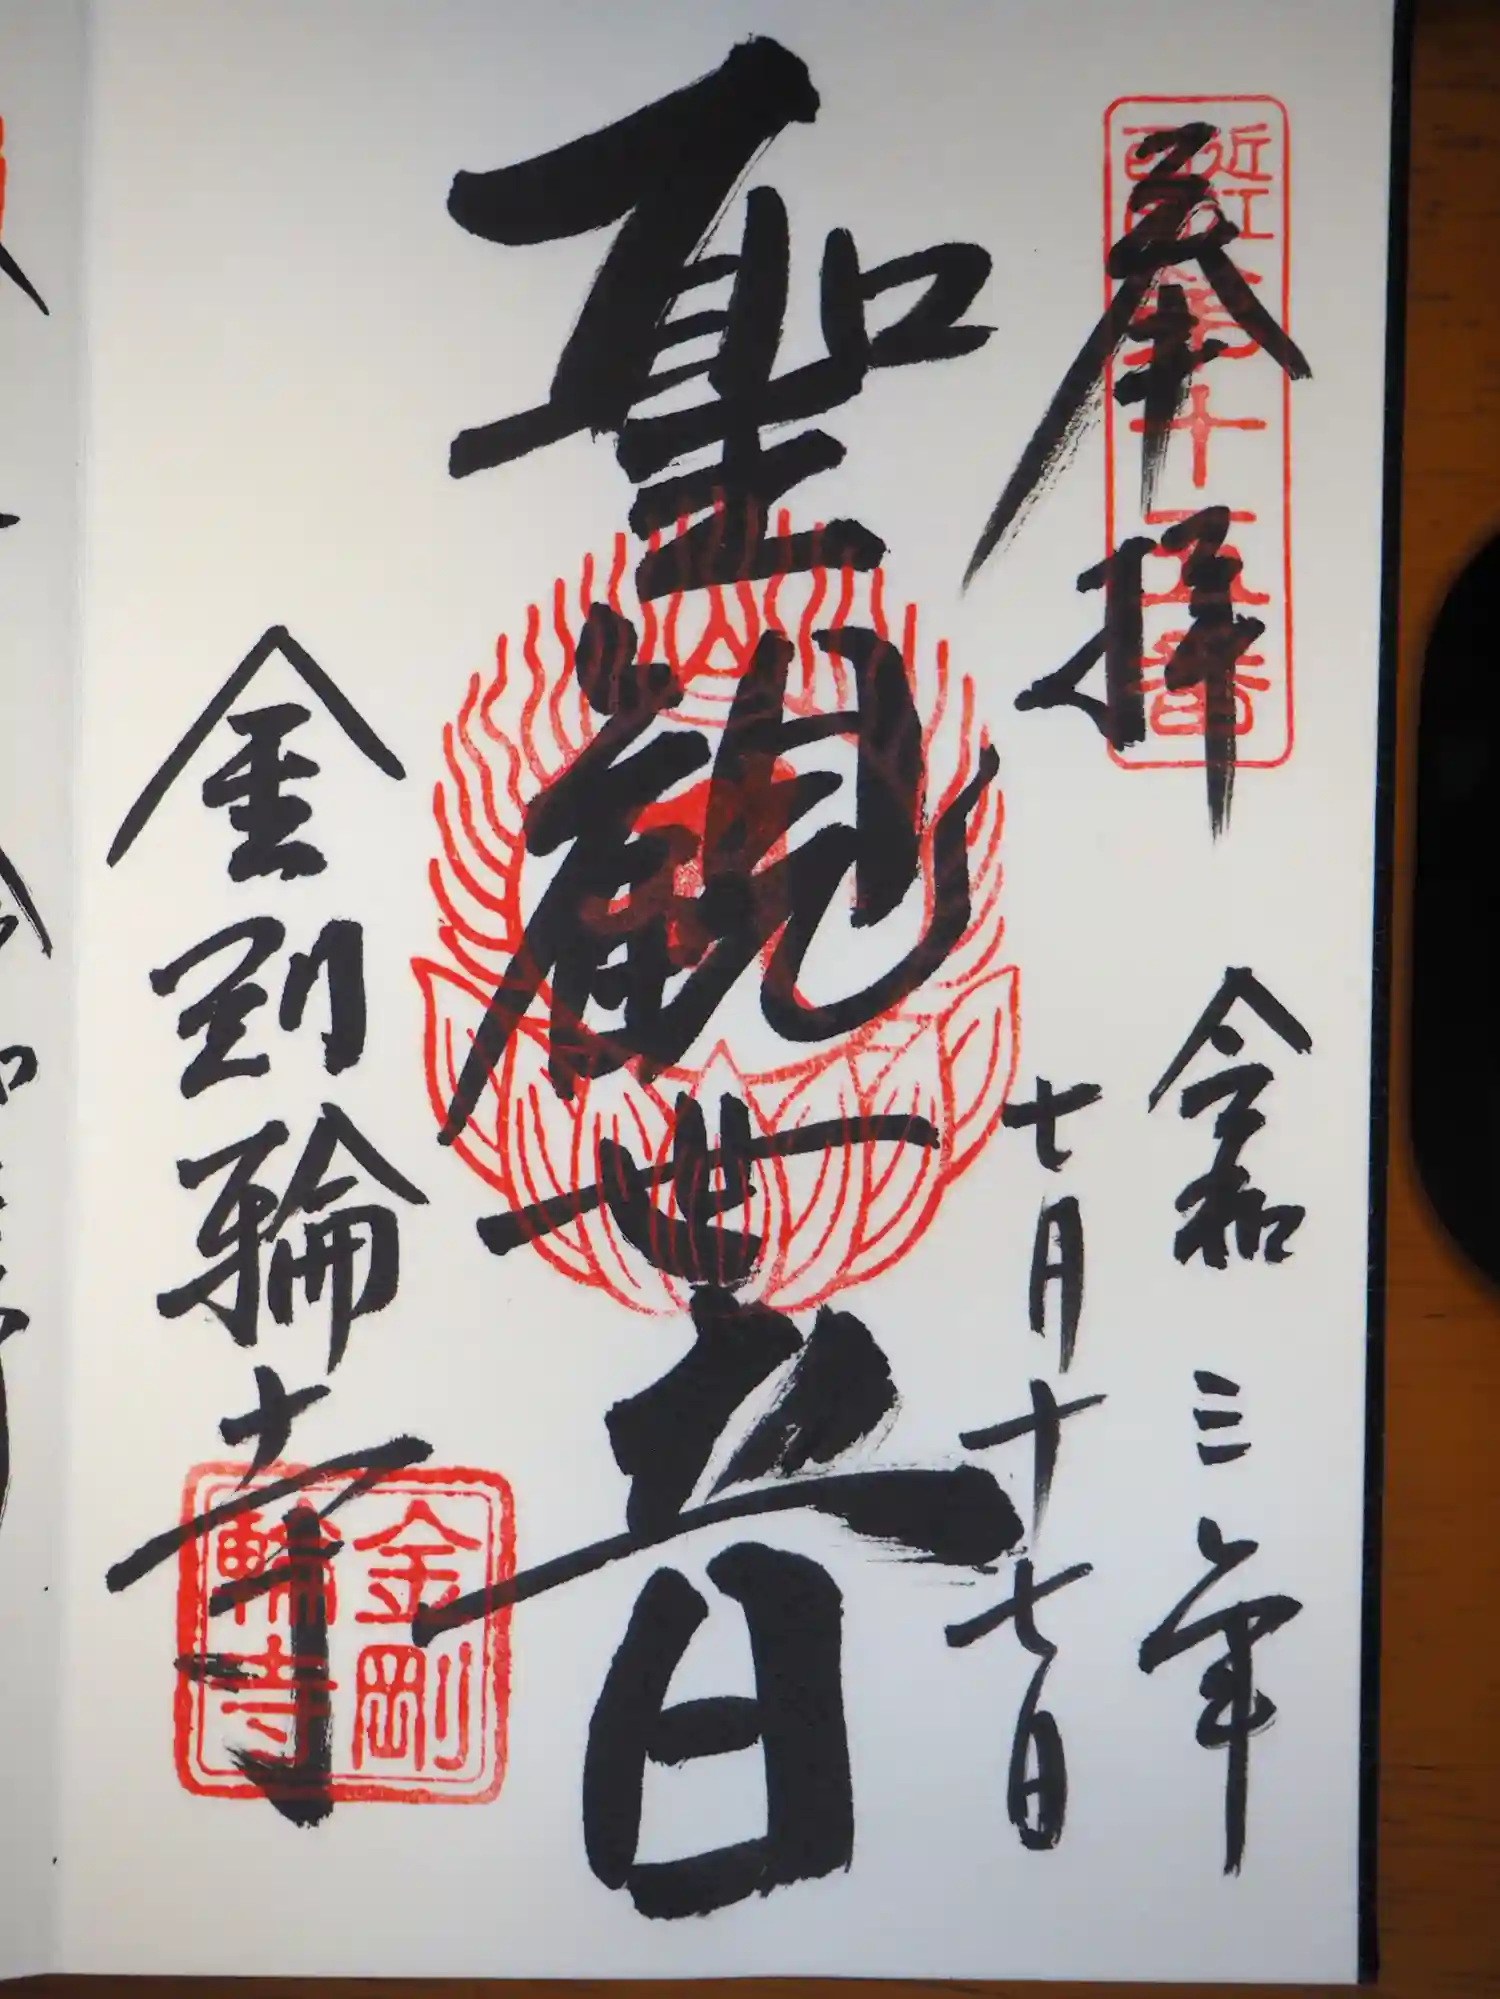 近江
西国
第十五番
奉拝
令和三年
七月十七日
聖観世音
金剛輪寺
金剛
輪寺